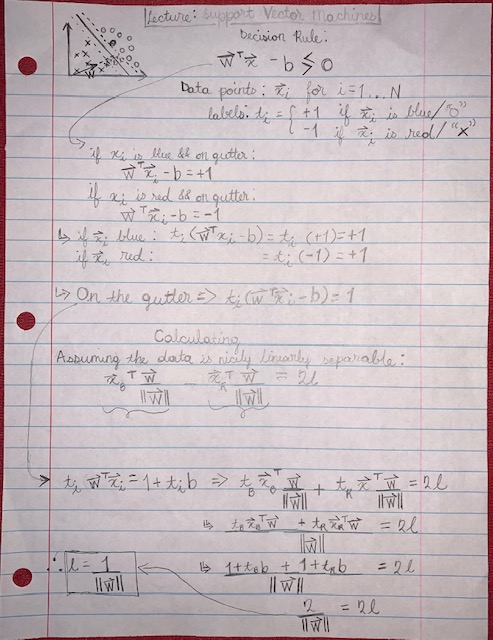 Lecture: Support Vector Machines
Decision Rule:
w⃗ᵀx⃗ - b ≶ 0
w⃗
Data points: x⃗ᵢ for i=1...N
labels: tᵢ = { +1 if x⃗ᵢ is blue/"o"
-1 if x⃗ᵢ is red/"x"
if xᵢ is blue && on gutter:
w⃗ᵀx⃗ᵢ - b = +1
if xᵢ is red && on gutter:
w⃗ᵀx⃗ᵢ - b = -1
↳ if x⃗ᵢ blue: tᵢ(w⃗ᵀxᵢ - b) = tᵢ(+1) = +1
if x⃗ᵢ red: = tᵢ(-1) = +1
↳ On the gutter => tᵢ(w⃗ᵀx⃗ᵢ - b) = 1
Calculating
Assuming the data is nicily linearly separable:
x⃗_Bᵀ w⃗/||w⃗|| - x⃗_Rᵀ w⃗/||w⃗|| = 2l
tᵢ w⃗ᵀx⃗ᵢ = 1 + tᵢb => t_B x⃗_Bᵀ w⃗/||w⃗|| + t_R x⃗ᵀ w⃗/||w⃗|| = 2l
↳ (t_B x⃗_Bᵀw⃗ + t_R x⃗_Rᵀw⃗)/||w⃗|| = 2l
∴ l = 1/||w⃗|| ↳ (1 + t_B b + 1 + t_R b)/||w⃗|| = 2l
2/||w⃗|| = 2l